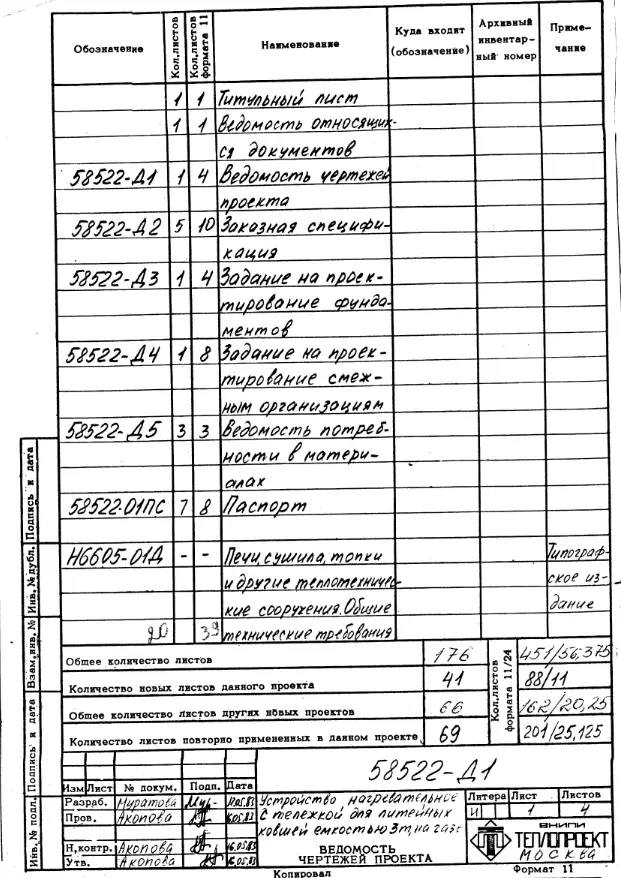 Обозначение Кол.листов Кол.листов формата 11 Наименование Куда входит (обозначение) Архивный инвентар- ный номер Приме- чание
1 1 Титульный лист
1 1 Ведомость относящих-
ся документов
58522-Д1 1 4 Ведомость чертежей
проекта
58522-Д2 5 10 Заказная специфи-
кация
58522-Д3 1 4 Задание на проек-
тирование фунда-
ментов
58522-Д4 1 8 Задание на проек-
тирование смеж-
ным организациям
58522-Д5 3 3 Ведомость потреб-
ности в матери-
алах
58522-01ПС 7 8 Паспорт
Н6605-01Д - - Печи, сушила, топки Типограф-
и другие теплотехничес- ское из-
кие сооружения. Общие дание
20 39 технические требования
Общее количество листов 176 Кол.листов формата 11/24 451/56,375
Количество новых листов данного проекта 41 88/11
Общее количество листов других новых проектов 66 162/20,25
Количество листов повторно примененных в данном проекте 69 201/25,125
58522-Д1
Изм Лист № докум. Подп. Дата
Разраб. Муратова
Пров. Акопова
Н.контр. Акопова
Утв. Акопова
Устройство нагревательное
с тележкой для литейных
ковшей емкостью 3т, на газе
ВЕДОМОСТЬ
ЧЕРТЕЖЕЙ ПРОЕКТА
Литера Лист Листов
И 1 4
ВНИПИ
ТЕПЛОПРОЕКТ
МОСКВА
Копировал Формат 11
Инв.№ подл. Подпись и дата Взам.инв.№ Инв.№дубл. Подпись и дата